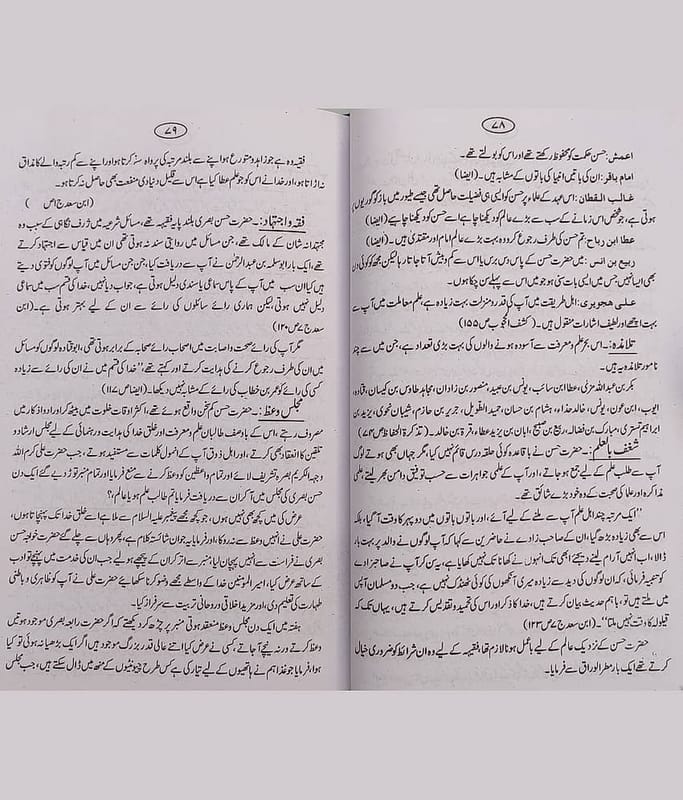 ۷۸
اعمش: حسن حکمت کو محفوظ رکھتے تھے اور اس کو بولتے تھے۔
امام باقر: ان کی باتیں انبیا کی باتوں کے مشابہ ہیں۔ (ایضا)
غالب القطان: اس عہد کے علماء پر حسن کو ایسی ہی فضیلت حاصل تھی جیسے طیور میں باز کو گوریوں پر
ہوتی ہے، جو شخص اس زمانے کے سب سے بڑے عالم کو دیکھنا چاہے اسے حسن کو دیکھنا چاہیے (ایضا)
عطا ابن رباح: تم حسن کی طرف رجوع کرو وہ بہت بڑے عالم امام اور مقتدیٰ ہیں۔ (ایضا)
ربیع بن انس: میں حضرت حسن کے پاس دس برس یا اس سے کم و بیش آتا جاتا رہا لیکن مجھ کو کوئی دن
بھی ایسا نہیں جس میں ایسی بات سنی ہو جو میں اس سے پہلے سن چکا ہوں۔
علی ہجویری: اہل طریقت میں آپ کی قدر و منزلت بہت زیادہ ہے علم معاملت میں آپ سے
بہت اچھے اور لطیف اشارات منقول ہیں۔ (کشف المحجوب ص ۱۵۵)
تلامذہ:۔ اس بحر علم و معرفت سے آسودہ ہونے والوں کی بہت بڑی تعداد ہے، جن میں سے چند
نامور تلامذہ یہ ہیں۔
بکر بن عبداللہ مزنی، عطا ابن سائب، یونس بن عبید، منصور بن زادان، مجاہد طاوس بن کیسان، قتادہ،
ایوب، ابن عون، یونس، خالد حذاء، ہشام بن حسان، حمید الطویل، جریر بن حازم، شیبان نحوی، یزید بن
ابراہیم تستری، مبارک بن فضالہ، ربیع بن صبیح، ابان بن یزید عطاء، قرۃ بن خالد۔ (تذکرۃ الحفاظ ص ۷۳)
شغف بالعلم:۔ حضرت حسن نے باقاعدہ کوئی حلقہ درس قائم نہیں کیا، مگر جہاں بھی ہوتے لوگ
آپ سے طلب علم کے لیے جمع ہو جاتے، اور آپ کے علمی جواہرات سے حسب توفیق دامن بھر لیتے، علمی
مذاکرہ اور علما کی صحبت کے وہ خود بڑے شائق تھے۔
”ایک مرتبہ چند اہل علم آپ سے ملنے کے لیے آئے، اور باتوں باتوں میں دوپہر کا وقت آ گیا، بلکہ
اس سے بھی زیادہ بڑھ گیا، ان کے صاحب زادے نے حاضرین سے کہا کہ آپ لوگوں نے والد پر بہت بار
ڈالا، اب انہیں آرام لینے دیجئے ابھی تک انہوں نے کھانا تک نہیں کھایا ہے، یہ سن کر آپ نے صاحبزادے
کو تنبیہ فرمائی، کہ ان لوگوں کی دید سے زیادہ میری آنکھوں کی کوئی ٹھنڈک نہیں ہے، جب دو مسلمان آپس
میں ملتے ہیں تو، باہم حدیث بیان کرتے ہیں، خدا کا ذکر اور اس کی تحمید و تقدیس کرتے ہیں، یہاں تک کہ
قیلولہ کا وقت نہیں ملتا“۔ (ابن سعد ج ۷ ص ۱۲۳)
حضرت حسن کے نزدیک عالم کے لیے باعمل ہونا لازم تھا، فقیہہ کے لیے وہ ان شرائط کو ضروری خیال
کرتے تھے ایک بار مطر الوراق سے فرمایا۔
۷۹
فقیہ وہ ہے جو زاہد و متورع ہو اپنے سے بلند مرتبہ کی پرواہ نہ کرتا ہو اور اپنے سے کم رتبہ والے کا مذاق
نہ اڑاتا ہو، اور خدا نے اس کو جو علم عطا کیا ہے اس سے قلیل دنیاوی منفعت بھی حاصل نہ کرتا ہو۔
(ابن سعد ج اص )
فقہ و اجتہاد:۔ حضرت حسن بصری بلند پایہ فقیہ تھے، مسائل شرعیہ میں ژرف نگاہی کے سبب وہ
مجتہدانہ شان کے مالک تھے، جن مسائل میں روایتی سند نہ ہوتی تھی ان میں قیاس سے اجتہاد کرتے
تھے، ایک بار ابو سلمہ بن عبدالرحمٰن نے آپ سے دریافت کیا، جن جن مسائل میں آپ لوگوں کو فتویٰ دیتے
ہیں کیا ان سب میں آپ کے پاس سماعی یا سندی دلیل ہوتی ہے، جواب دیا نہیں، خدا کی قسم سب میں سماعی
دلیل نہیں ہوتی، لیکن ہماری رائے سائلوں کی رائے سے ان کے لیے بہتر ہوتی ہے۔ (ابن
سعد ج ۷ ص ۱۲۰)
مگر آپ کی رائے صحت و اصابت میں اصحاب رائے صحابہ کے برابر ہوتی تھی، ابو قتادہ لوگوں کو مسائل
میں ان کی طرف رجوع کرنے کی ہدایت کرتے اور کہتے تھے ”خدا کی قسم میں نے ان کی رائے سے زیادہ
کسی کی رائے کو عمر بن خطاب کی رائے کے مشابہ نہیں دیکھا۔ (ایضا ص ۱۱۷)
مجلس وعظ:۔ حضرت حسن کم سخن واقع ہوئے تھے، اکثر اوقات خلوت میں بیٹھ کر اوراد و اذکار میں
مصروف رہتے، اس کے باوصف طالبان علم و معرفت اور خلق خدا کی ہدایت و رہنمائی کے لیے مجلس ارشاد و
تلقین کا انعقاد بھی کرتے، اور اہل ذوق آپ کے انمول کلمات سے مستفید ہوتے، جب حضرت علی کرم اللہ
وجہہ الکریم بصرہ تشریف لائے اور تمام واعظین کو وعظ کرنے سے منع فرمایا اور تمام منبر توڑ دیے گئے ایک دن
حسن بصری کی مجلس میں آ کر ان سے دریافت فرمایا تم طالب علم ہو یا عالم؟،
عرض کی میں کچھ بھی نہیں ہوں، جو کچھ مجھے پیغمبر علیہ السلام سے ملا ہے اسے خلق خدا تک پہنچاتا ہوں،
حضرت علی نے انہیں وعظ سے نہ روکا اور فرمایا یہ جوان شائستہ کلام ہے، پھر وہاں سے چلے گئے حضرت خواجہ حسن
بصری نے فراست سے انہیں پہچان لیا، منبر سے اتر کر ان کے پیچھے ہو لیے جب ان کی خدمت میں پہنچے تو ادب
کے ساتھ عرض کیا، امیر المومنین خدا کے واسطے مجھے وضو کرنا سکھائیے حضرت علی نے آپ کو ظاہری و باطنی
طہارت کی تعلیم دی، اور مزید اخلاقی و روحانی تربیت سے سرفراز کیا۔
ہفتہ میں ایک دن مجلس وعظ منعقد ہوتی منبر پر چڑھ کر دیکھتے کہ اگر حضرت رابعہ بصری موجود ہوتیں
وعظ کرتے ورنہ نیچے آ جاتے، کسی نے عرض کیا اتنے عالی قدر بزرگ موجود ہیں اگر ایک بڑھیا نہ ہوئی تو کیا
ہوا، فرمایا جو غذا ہم نے ہاتھیوں کے لیے تیار کی ہے کس طرح چیونٹیوں کے منھ میں ڈال سکتے ہیں، جب مجلس